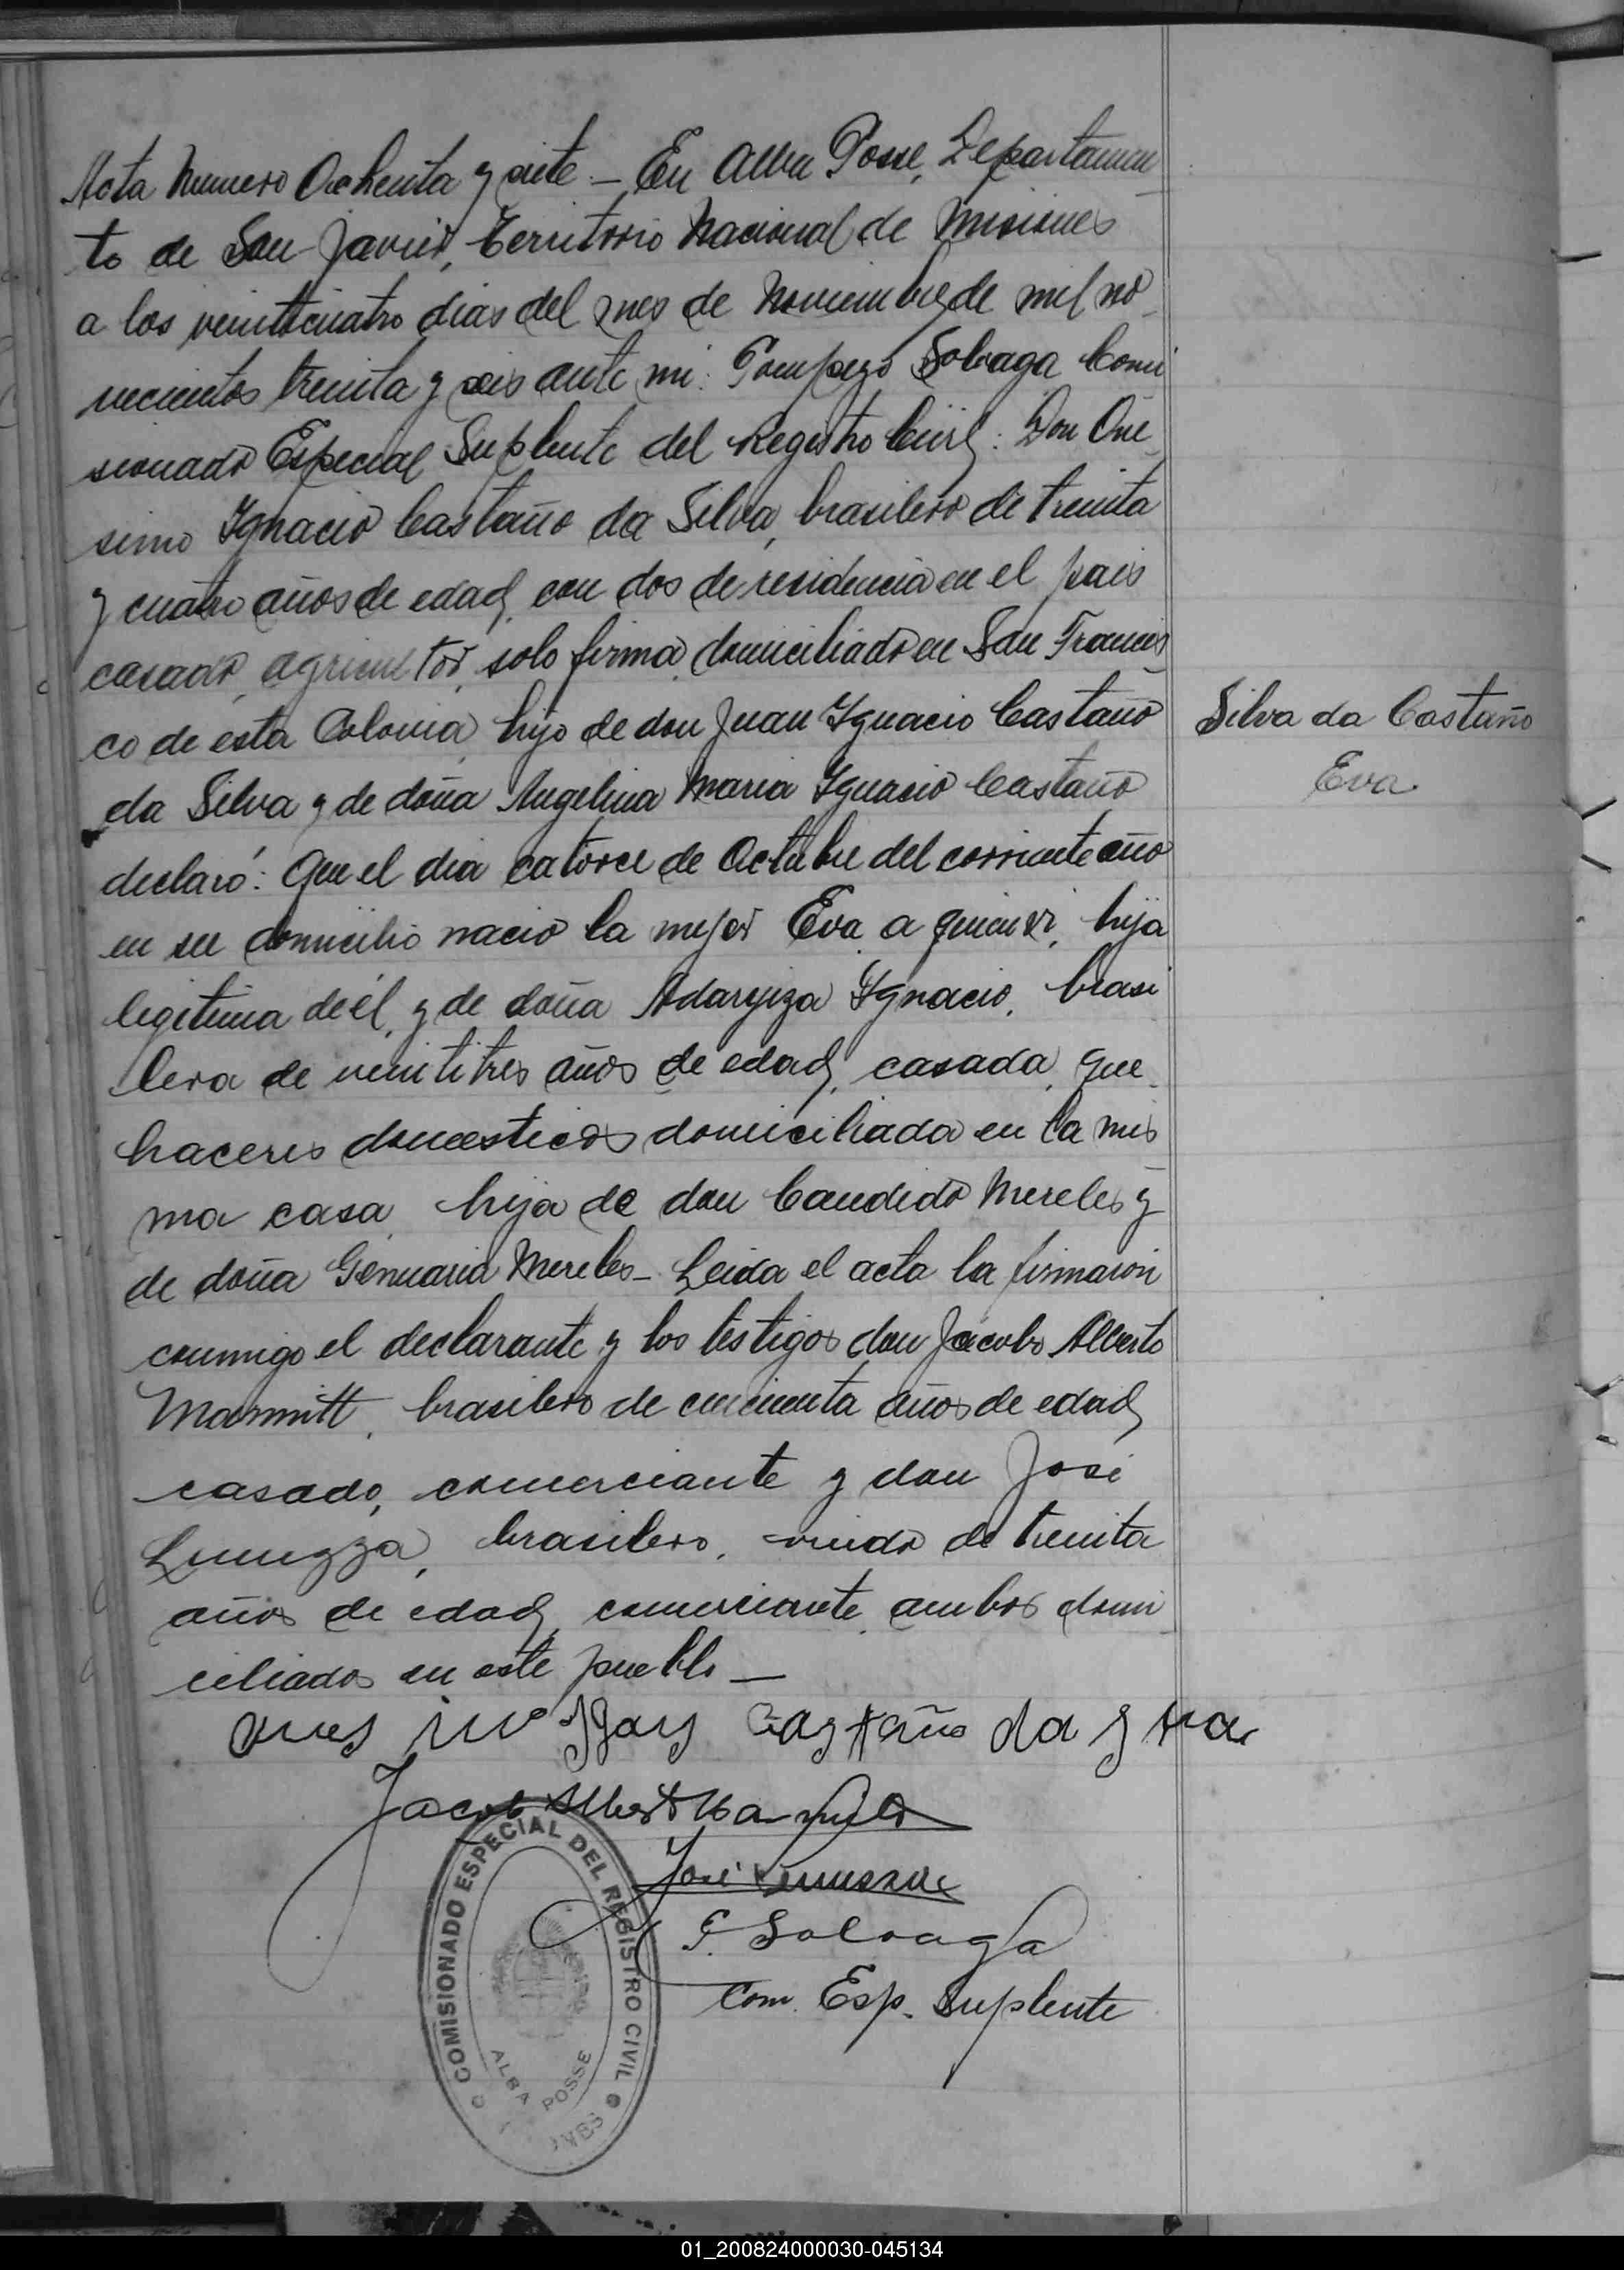 Acta Numero Ochenta y siete.— En Alba Posse, Departamen
to de San Javier, Territorio Nacional de Misiones
a los veinticuatro dias del mes de Noviembre de mil no
vecientos treinta y seis ante mi: Pompeyo Solvaga Comi
sionado Especial Suplente del Registro Civil: Don One
simo Ygnacio Castaño da Silva, brasilero de treinta
y cuatro años de edad, con dos de residencia en el pais
casado, agricultor, solo firma, domiciliado en San Francis
co de esta Colonia, hijo de don Juan Ygnacio Castaño
da Silva y de doña Angelina Maria Ygnacio Castaño
declaró: Que el dia catorce de Octubre del corriente año
en su domicilio nacio la mujer Eva a quien vi, hija
legitima de él, y de doña Ygnacio, brasi
lera de veintitres años de edad, casada, que
haceres domesticos domiciliada en la mis
ma casa, hija de don Candido Mereles y
de doña Genuaria Mereles— Leida el acta la firmaron
conmigo el declarante y los testigos don Jacobo Alberto
Marmitt, brasilero de cincuenta años de edad,
casado, comerciante y don José
brasilero, viudo de treinta
años de edad, comerciante, ambos domi
ciliados en este pueblo—
Silva da Castaño
Eva.
Castaño da
Jacob Albert
José
P. Solvaga
Com. Esp. Suplente
COMISIONADO ESPECIAL DEL REGISTRO CIVIL
ALBA POSSE
01_200824000030-045134